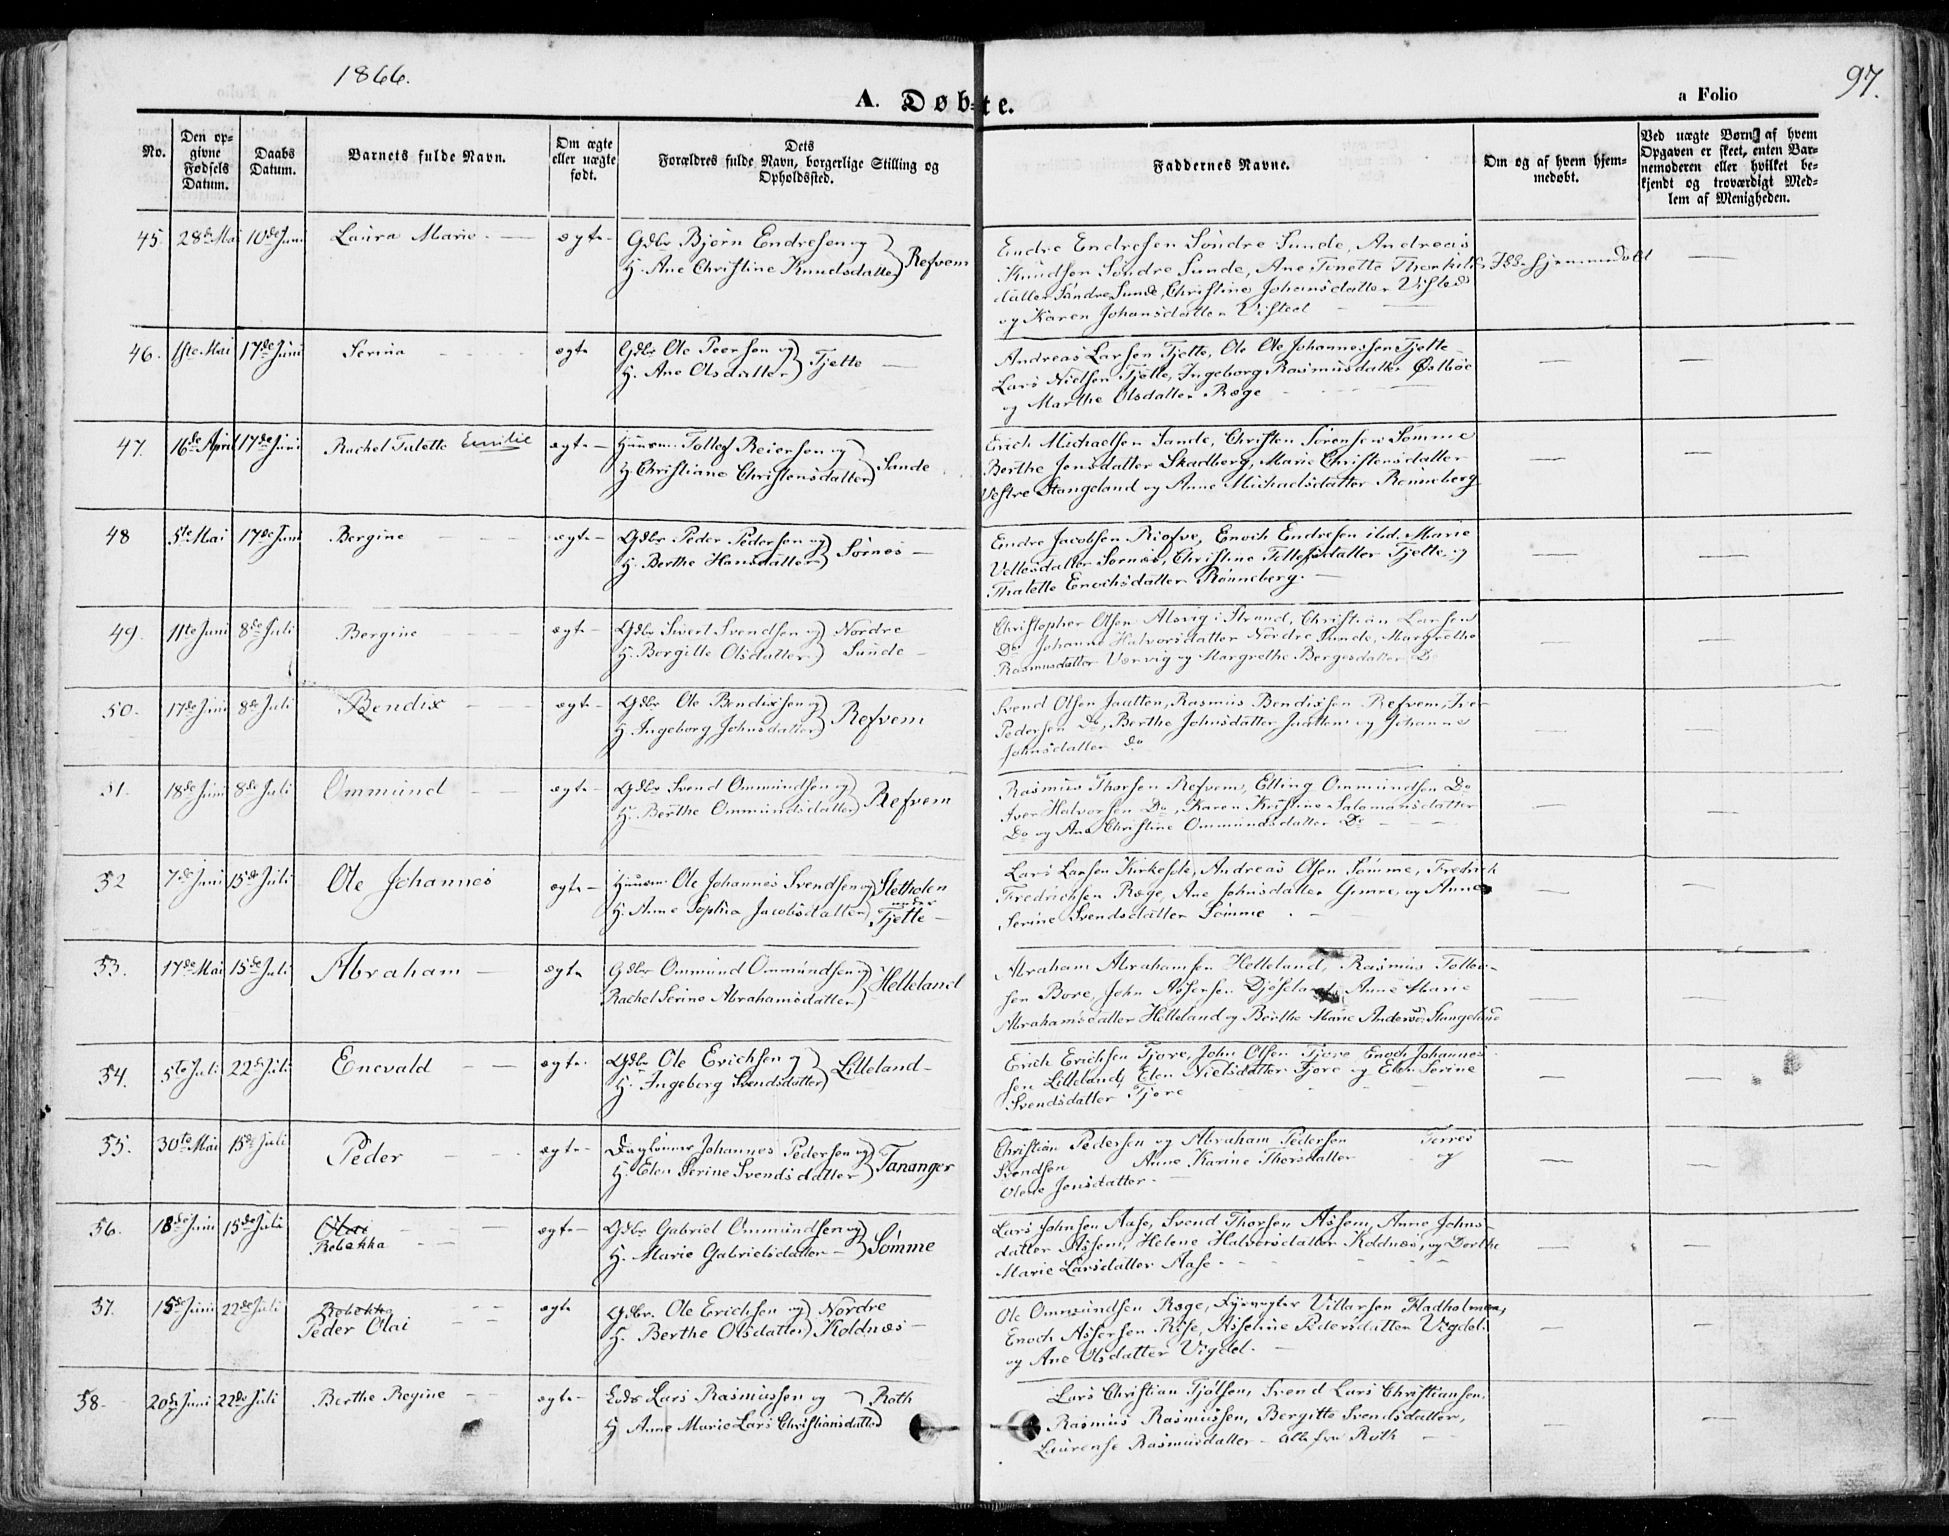 1866.
97.
A. Døbte.
a Folio
No.
Den op=
givne
Fødsels
Datum.
Daabs
Datum.
Barnets fulde Navn.
Om ægte
eller uægte
født.
Dets
Forældres fulde Navn, borgerlige Stilling og
Opholdssted.
Faddernes Navne.
Om og af hvem hjem=
medøbt.
Ved uægte Børn, af hvem
Opgaven er skeet, enten Bar=
nemoderen eller hvilket be=
kjendt og troværdigt Med=
lem af Menigheden.
45. 28de Mai 10de Juni Laura Marie ægte Gdbr Bjørn Endresen og
H. Ane Christine Knudsdatter Refvem
Endre Endresen Søndre Sunde, Andreas
Knudsen Søndre Sunde, Ane Tonette Thorkilds
datter Søndre Sunde, Christine Johansdatter Visted
og Karen Johansdatter Visted
hjemmedøbt
46. 1ste Mai 17de Juni Serina ægte Gdbr Ole Peersen og
H. Ane Olsdatter Tjette
Andreas Larsen Tjette, Ole Ole Johannessen Tjette
Lars Nielsen Tjette, Ingeborg Rasmusdatter Østbøe
og Marthe Olsdatter Ræge
47. 16de April 17de Juni Rachel Talette Emilie ægte Huusm. Tollef Reiersen og
H. Christiane Christensdatter Sande
Erich Michaelsen Sande, Christen Sørensen Sømme
Berthe Jensdatter Skadberg, Marie Christensdatter
Vestre Stangeland og Anne Michaelsdatter Rønneberg
48 5te Mai 17de Juni Bergine ægte Gdbr Peder Pedersen og
H. Berthe Hansdatter Sørnes
Endre Jacobsen Riofve, Enoch Endresen ibid. Marie
Sørnes, Christine Tollefsdatter Tjette og
Thalette Enochsdatter Rønneberg.
49. 11te Juni 8de Juli Bergine ægte Gdbr Sivert Svendsen og Nordre
H. Bergitte Olsdatter Sunde
Christopher Olsen Alsvig i Strand, Christian Larsen
Do Johanne Halvorsdatter Nordre Sunde, Margrethe
Rasmusdatter Værvig og Margrethe Bergesdatter Do
50. 17de Juni 8de Juli Bendix ægte Gdbr Ole Bendixsen og
H. Ingeborg Johnsdatter Refvem
Svend Olsen Jaatten, Rasmus Bendixsen Refvem,
Pedersen Do, Berthe Johnsdatter Jaatten og Johanne
Johnsdatter Do
51. 18de Juni 8de Juli Ommund ægte Gdbr Svend Ommundsen og
H. Berthe Ommundsdatter Refvem
Rasmus Thorsen Refvem, Elling Ommundsen Do
Iver Halvorsen Do, Karen Kristine Salomonsdatter
Do og Ane Christine Ommundsdatter Do
52 7de Juni 15de Juli Ole Johannes ægte Huusm. Ole Johannes Svendsen og Sletholen
H. Anne Sophia Jacobsdatter under
Tjette
Lars Larsen Andreas Olsen Sømme, Fredrich
Fredrichsen Ræge, Ane Johnsdatter Gimre, og Anne
Serine Svendsdatter Sømme
53. 17de Mai 15de Juli Abraham ægte Gdbr Ommund Ommundsen og
Rachel Serine Abrahamsdatter Helleland
Abraham Abrahamsen Helleland, Rasmus Tollev-
sen Bore, John Assersen Anne Marie
Abrahamsdatter Helleland og Berthe Marie Andersd. Stangeland
54. 5te Juli 22de Juli Enevald ægte Gdbr Ole Erichsen og
H. Ingeborg Svendsdatter Lilleland
Erich Erichsen Tjore, John Olsen Tjore Enoch Johannes-
sen Lilleland, Elen Nielsdatter Tjore og Elen Serine
Svendsdatter Tjore
55. 30te Mai 15de Juli Peder ægte Daglønner Johannes Pedersen og
H. Elen Serine Svendsdatter Tananger
Christian Pedersen og Abraham Pedersen Torres
Svendsen Anne Karine Thorsdatter og
Olene Jensdatter
56. 18de Juni 15de Juli Olai
Rebekka ægte Gdbr Gabriel Ommundsen og
H. Marie Gabrielsdatter Sømme
Lars Johnsen Aase, Svend Thorsen Assem, Anne Johns-
datter Assem, Helene Halvorsdatter Koldnæs, og Dorthe
Marie Larsdatter Aase
57. 15de Juni 22de Juli Rebekka
Peder Olai ægte Gdbr. Ole Erichsen og Nordre
H. Berthe Olsdatter Koldnæs
Ole Ommundsen Ræge, Fyrvogter Villarsen Fladholmen,
Enoch Assersen Risa, Asseline Pedersdatter Vigdel
og Ane Olsdatter Vigdel.
58. 20de Juni 22de Juli Berthe Regine ægte Lods Lars Rasmussen og Roth
H. Anne Marie Lars Christiansdatter
Lars Christian Tjølsen, Svend Lars Christiansen,
Rasmus Rasmussen, Bergitte Svendsdatter,
Laurense Rasmusdatter - alle fra Roth